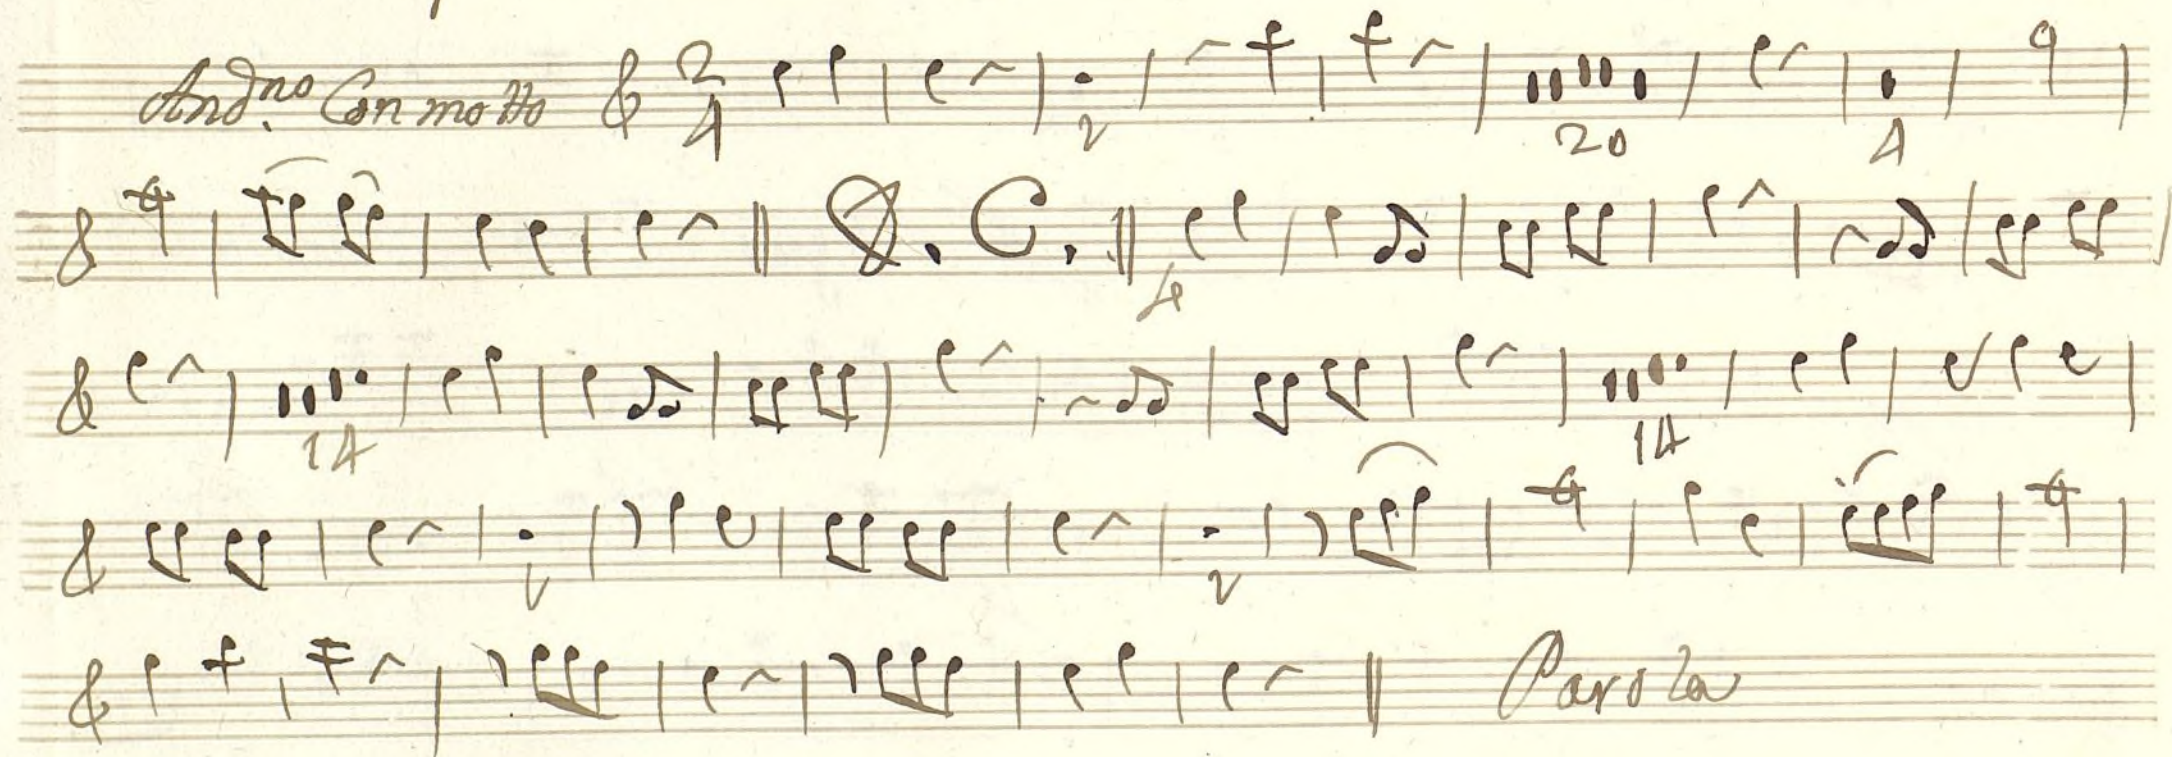 And.no Con motto 2 4 2 20 4
D. C. 4
14 14
2 2
Parola